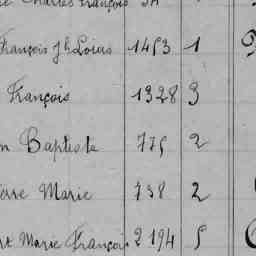 Charles François
François Jh Louis 1453 1
François 1328 3
n Baptiste 775 2
rre Marie 738 2
rt Marie François 2194 5